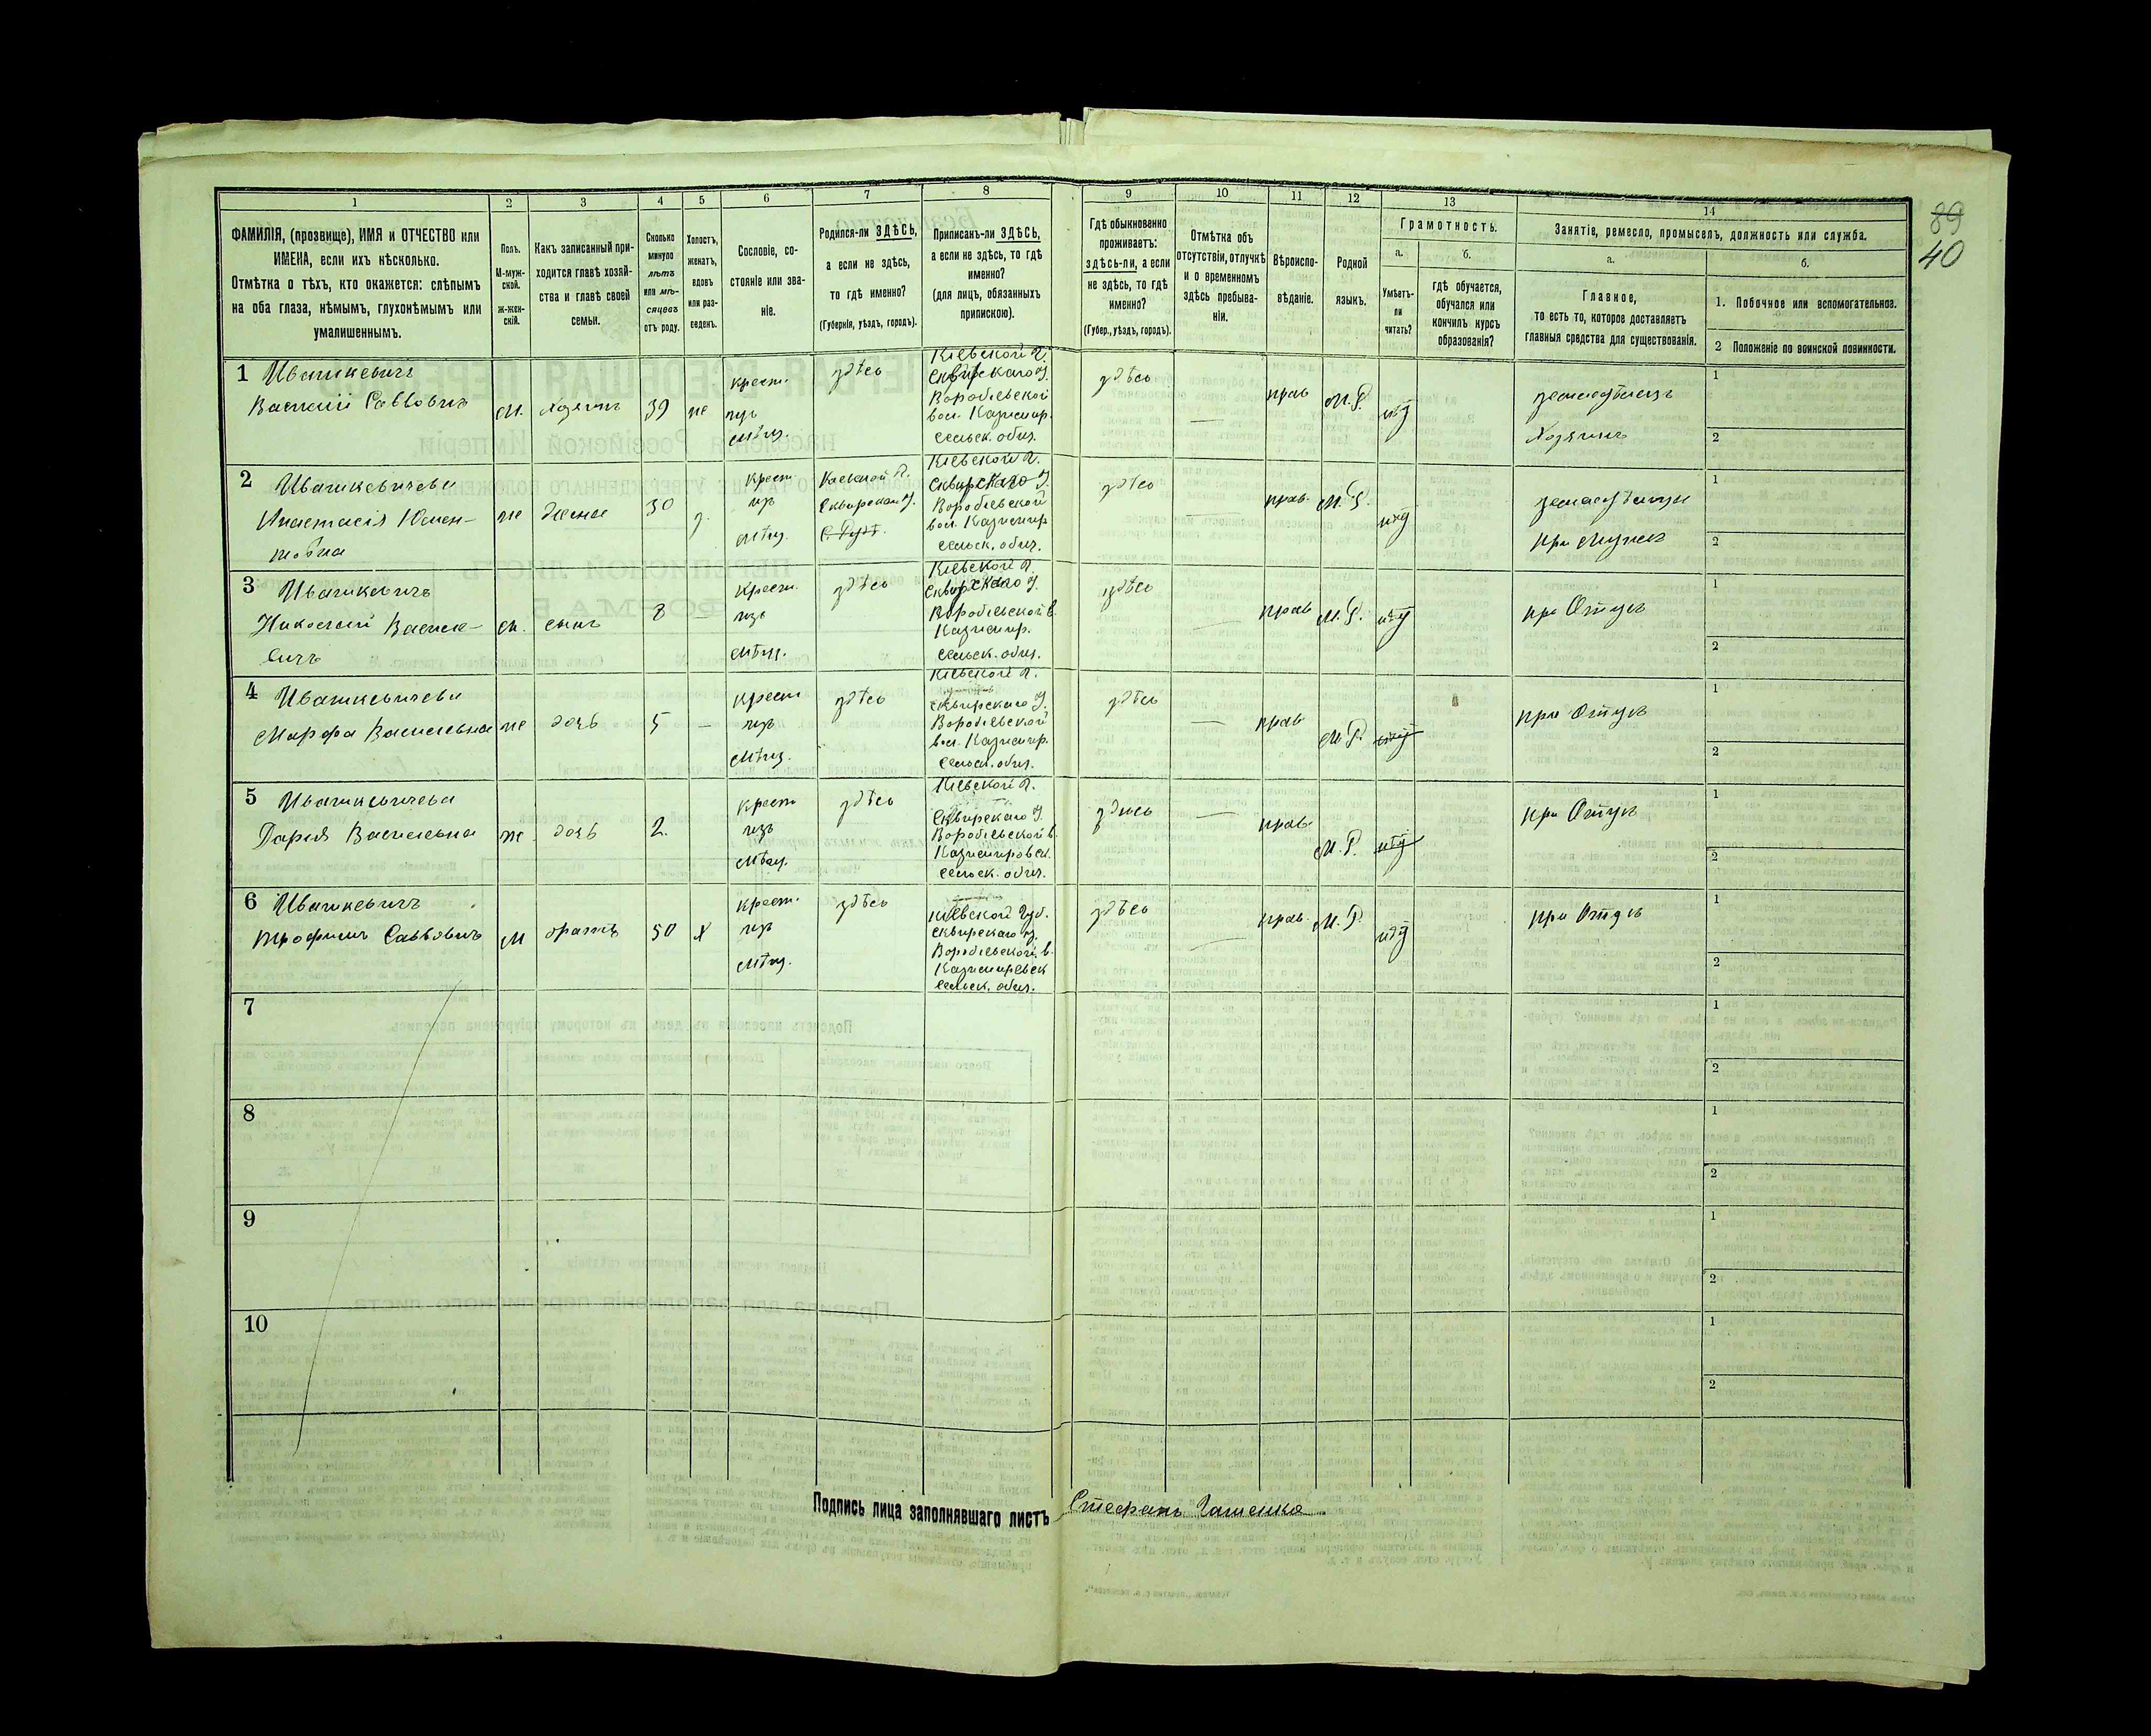 89
40
1
2
3
4
5
6
7
8
9
10
11
12
13
14
ФАМИЛІЯ, (прозвище), ИМЯ и ОТЧЕСТВО или
ИМЕНА, если ихъ нѣсколько.
Отмѣтка о тѣхъ, кто окажется: слѣпымъ
на оба глаза, нѣмымъ, глухонѣмымъ или
умалишеннымъ.
Полъ.
М-муж-
ской.
ж-жен-
скій.
Какъ записанный при-
ходится главѣ хозяй-
ства и главѣ своей
семьи.
Сколько
минуло
лѣтъ
или мѣ-
сяцевъ
отъ роду.
Холостъ,
женатъ,
вдовъ
или раз-
веденъ.
Сословіе, со-
стояніе или зва-
ніе.
Родился-ли ЗДѢСЬ,
а если не здѣсь,
то гдѣ именно?
(Губернія, уѣздъ, городъ).
Приписанъ-ли ЗДѢСЬ,
а если не здѣсь, то гдѣ
именно?
(для лицъ, обязанныхъ
припискою).
Гдѣ обыкновенно
проживаетъ:
здѣсь-ли, а если
не здѣсь, то гдѣ
именно?
(Губер., уѣздъ, городъ).
Отмѣтка объ
отсутствіи, отлучкѣ
и о временномъ
здѣсь пребыва-
ніи.
Вѣроиспо-
вѣданіе.
Родной
языкъ.
Грамотность.
а.
Умѣетъ-
ли
читать?
б.
гдѣ обучается,
обучался или
кончилъ курсъ
образованія?
Занятіе, ремесло, промыселъ, должность или служба.
а.
Главное,
то есть то, которое доставляетъ
главныя средства для существованія.
б.
1. Побочное или вспомогательное.
2 Положеніе по воинской повинности.
1 Ивашкевичъ
Василій Саввовичъ
м.
Хозяинъ
39
же
крест.
изъ
мѣщ.
здѣсь
Кіевской г.
Сквирскаго у.
Воробіевской
вол. Казимир.
сельск. общ.
здѣсь
—
прав.
М.Р.
нѣт
земледѣлецъ
Хозяинъ
1
2
2 Ивашкевичева
Анастасія Климен-
товна
же
жена
30
з.
крест.
изъ
мѣщ.
Кіевской г.
Сквирскаго у.
Кіевской г.
Сквирскаго у.
Воробіевской
вол. Казимир
сельск. общ.
здѣсь
—
прав.
М.Р.
нѣт
при мужѣ
1
2
3 Ивашкевичъ
Николай Василе-
вичъ
м.
сынъ
8
—
крест.
изъ
мѣщ.
здѣсь
Кіевской г.
Сквирскаго у.
Воробіевской в.
Казимир.
сельск. общ.
здѣсь
—
прав
М.Р.
нѣт
при Отцѣ
1
2
4 Ивашкевичева
Марфа Васильевна
же
дочь
5
—
крест
изъ
мѣщ.
здѣсь
Кіевской г.
Сквирскаго у.
Воробіевской
вол. Казимир.
сельск. общ.
здѣсь
—
прав.
М.Р.
нѣт
при Отцѣ
1
2
5 Ивашкевичева
Дарія Васильевна
же
дочь
2.
крест
изъ
мѣщ.
здѣсь
Кіевской г.
Сквирскаго у.
Воробіевской в.
Казимировск.
сельск. общ.
здѣсь
—
прав.
М.Р.
нѣт
при Отцѣ
1
2
6 Ивашкевичъ
Трофимъ Саввовичъ
м
братъ
50
х
крест.
изъ
мѣщ.
здѣсь
Кіевской губ.
Сквирскаго у.
Воробіевской в.
Казимирвск
сельск. общ.
здѣсь
—
прав.
М.Р.
нѣт
1
2
7
1
2
8
1
2
9
1
2
10
1
2
Подпись лица заполнявшаго листъ